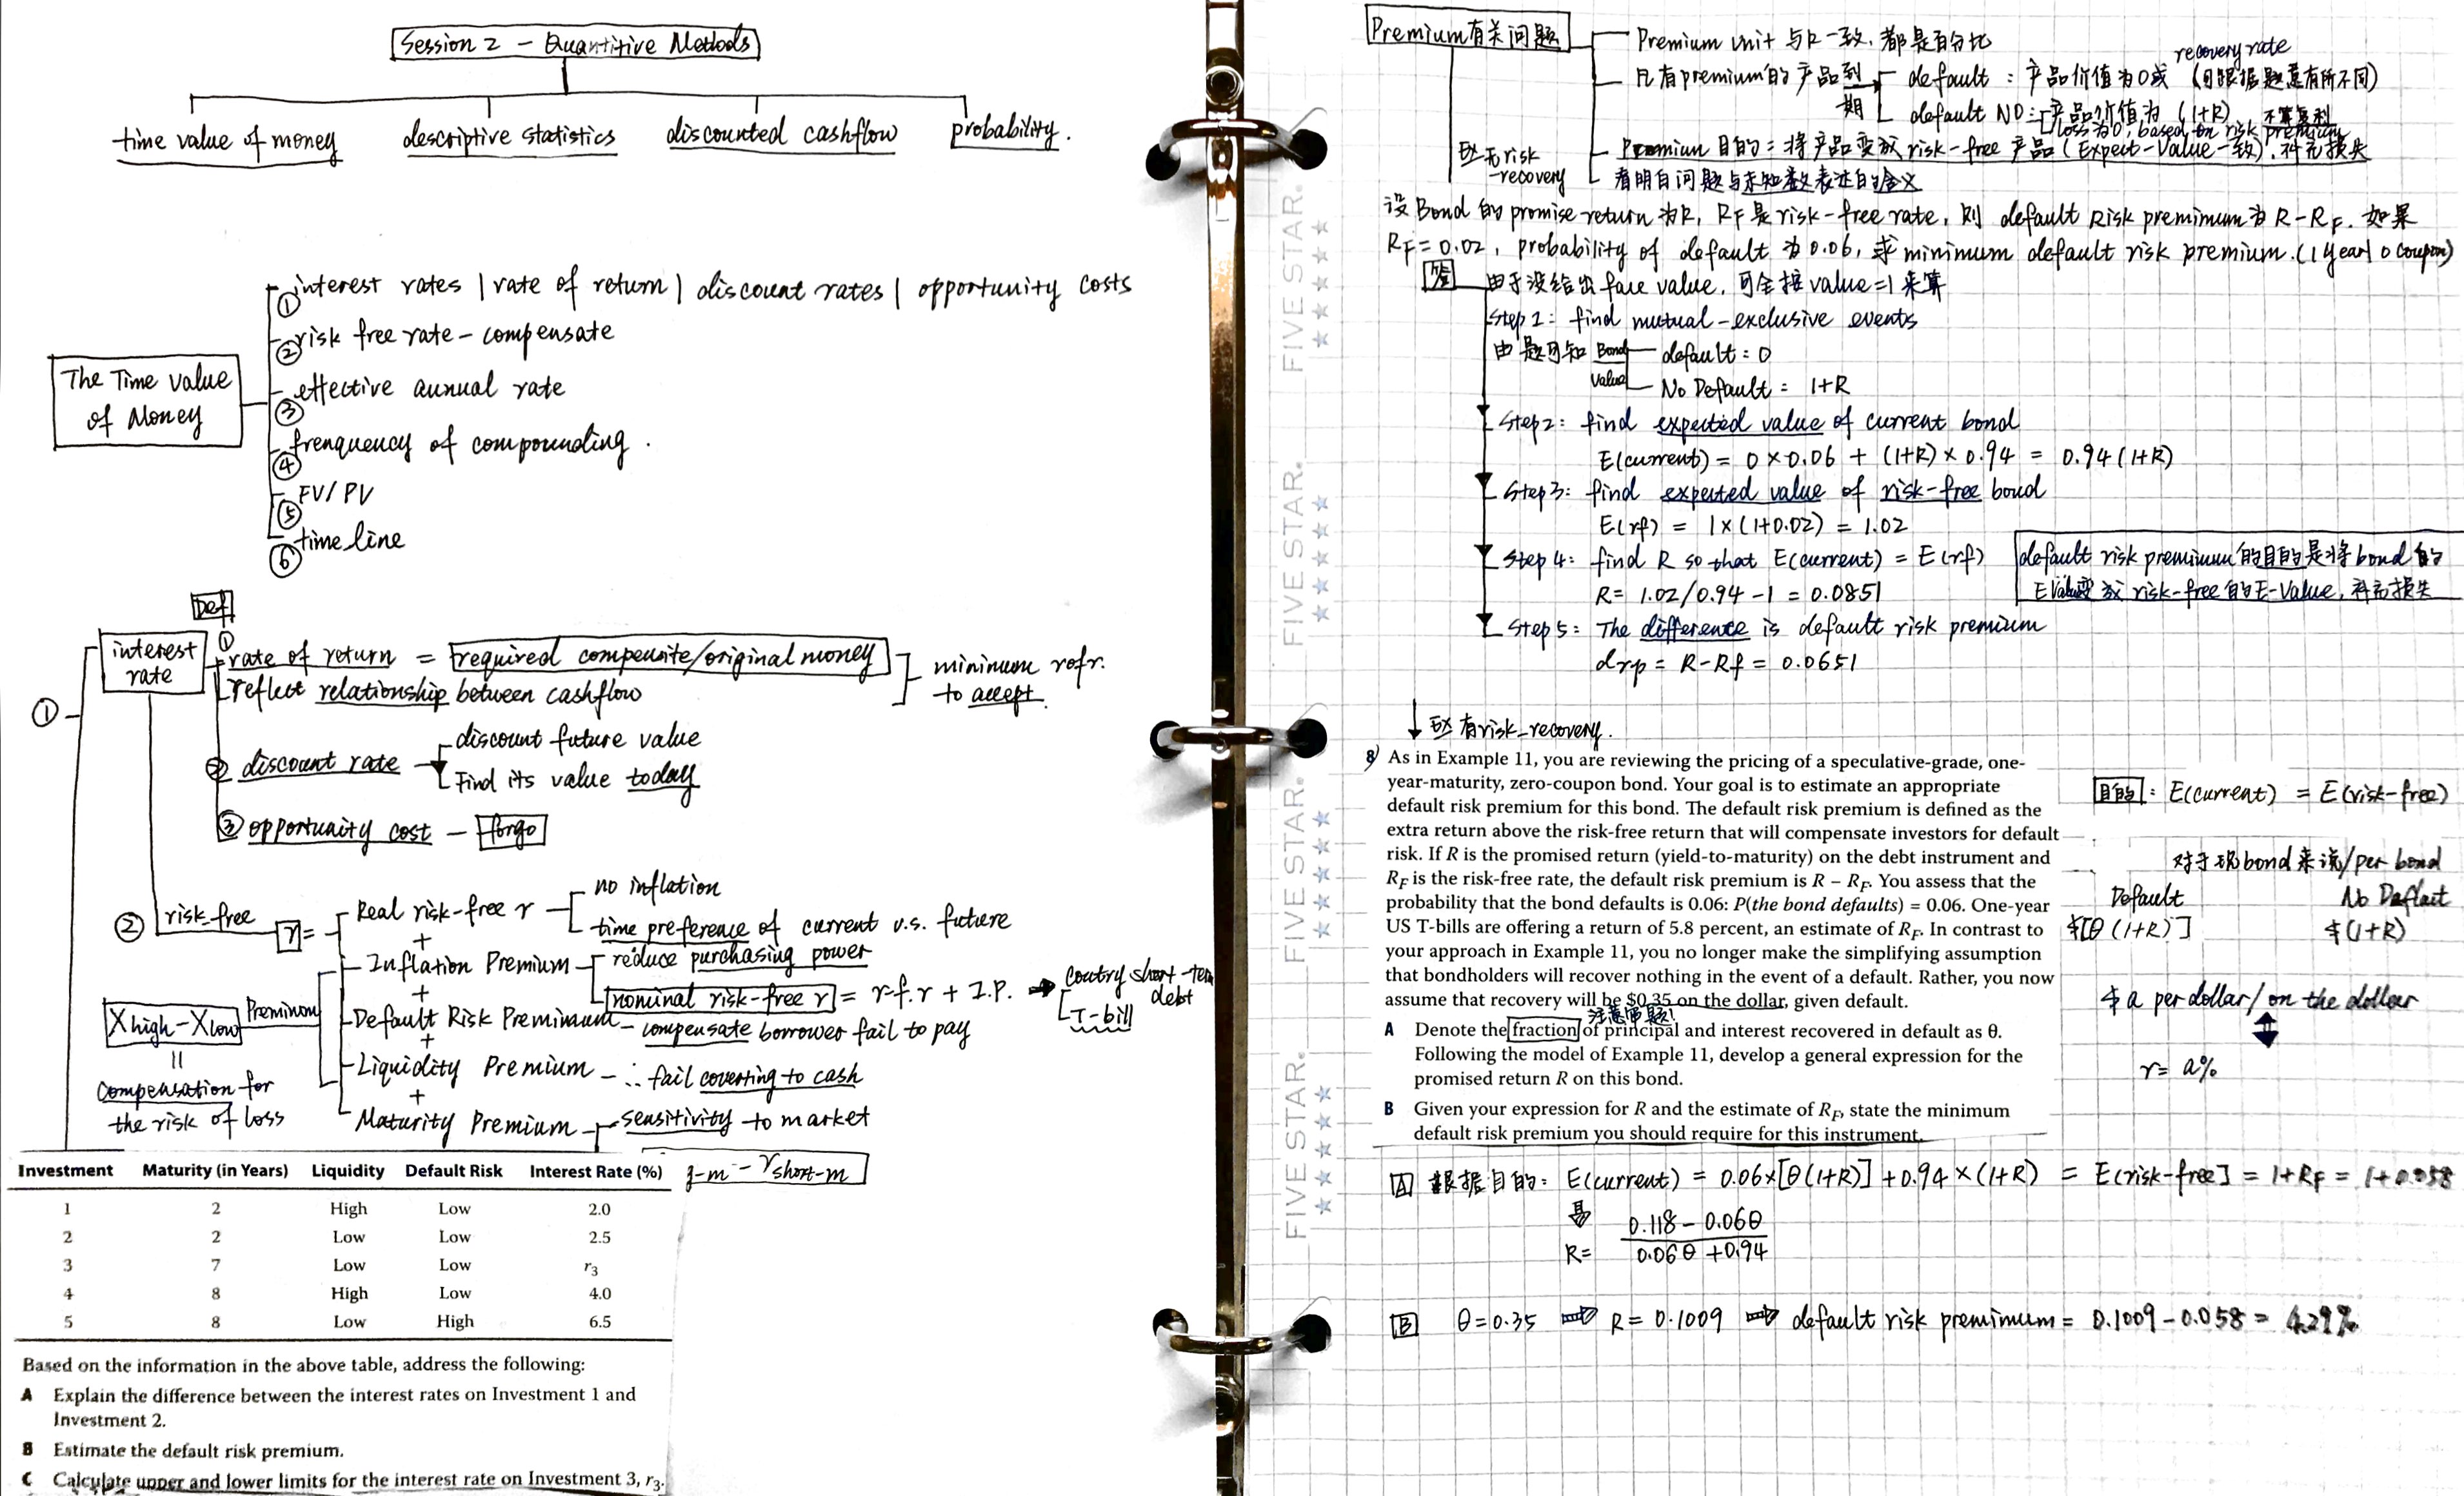 Session 2 - Quantitive Methods
time value of money
descriptive statistics
discounted cashflow
probability.
The Time Value
of Money
① interest rates | rate of return | discount rates | opportunity costs
② risk free rate - compensate
③ effective aunual rate
④ frenquency of compounding.
⑤ FV/PV
⑥ time line
Def
①
interest
rate
① rate of return = required compensite/original money
reflect relationship between cashflow
minimum rofr.
to accept.
② discount rate
discount future value
Find its value today
③ opportunity cost - forgo
② risk-free
r =
Real risk-free r
no inflation
time preference of current v.s. future
+
Inflation Premium
reduce purchasing power
nominal risk-free r = r-f.r + I.P.
coutry short-term
debt
T-bill
+
Default Risk Premium - compensate borrower fail to pay
+
Liquidity Premium - ∴ fail coverting to cash
+
Maturity Premium - sensitivity to market
Premium
X high - X low
=
compensation for
the risk of loss
g-m - r short-m
Investment Maturity (in Years) Liquidity Default Risk Interest Rate (%)
1 2 High Low 2.0
2 2 Low Low 2.5
3 7 Low Low r3
4 8 High Low 4.0
5 8 Low High 6.5
Based on the information in the above table, address the following:
A Explain the difference between the interest rates on Investment 1 and
Investment 2.
B Estimate the default risk premium.
C Calculate upper and lower limits for the interest rate on Investment 3, r3.
FIVE STAR.
FIVE STAR.
FIVE STAR.
FIVE STAR.
Premium有关问题
Premium unit 与R一致, 都是百分比
凡有premium的产品到期
recovery rate
default : 产品价值为0或 (因根据题意有所不同)
default NO: 产品价值为 (1+R) 不算复利
loss为0, based on risk premium
Premium目的: 将产品变成 risk-free 产品 (Expect-Value一致), 补充损失
看明白问题与未知数表述的含义
无risk
-recovery
设Bond的promise return为R, RF是risk-free rate, 则 default Risk premimum为 R-RF. 如果
RF=0.02, probability of default 为0.06, 求minimum default risk premium. (1 year 0 coupon)
答
由于没给出face value, 可全按value=1来算
Step 1: find mutual-exclusive events
由题可知 Bond Value
default: 0
No Default: 1+R
Step 2: find expected value of current bond
E(current) = 0×0.06 + (1+R)×0.94 = 0.94(1+R)
Step 3: find expected value of risk-free bond
E(rf) = 1×(1+0.02) = 1.02
Step 4: find R so that E(current) = E(rf)
R = 1.02/0.94 - 1 = 0.0851
default risk premimum的目的是将bond的
E Value变成risk-free的E-Value, 补充损失
Step 5: The difference is default risk premium
drp = R-Rf = 0.0651
↓ 有risk_recovery.
8) As in Example 11, you are reviewing the pricing of a speculative-grade, one-
year-maturity, zero-coupon bond. Your goal is to estimate an appropriate
default risk premium for this bond. The default risk premium is defined as the
extra return above the risk-free return that will compensate investors for default
risk. If R is the promised return (yield-to-maturity) on the debt instrument and
RF is the risk-free rate, the default risk premium is R − RF. You assess that the
probability that the bond defaults is 0.06: P(the bond defaults) = 0.06. One-year
US T-bills are offering a return of 5.8 percent, an estimate of RF. In contrast to
your approach in Example 11, you no longer make the simplifying assumption
that bondholders will recover nothing in the event of a default. Rather, you now
assume that recovery will be $0.35 on the dollar, given default.
注意审题!
A Denote the fraction of principal and interest recovered in default as θ.
Following the model of Example 11, develop a general expression for the
promised return R on this bond.
B Given your expression for R and the estimate of RF, state the minimum
default risk premium you should require for this instrument.
目的: E(current) = E(risk-free)
对于现bond来说/per bond
Default No Deflaut
$[θ(1+R)] $(1+R)
$ a per dollar/on the dollar
r = a%
A 根据目的: E(current) = 0.06×[θ(1+R)] + 0.94×(1+R) = E(risk-free] = 1+RF = 1+0.058
R = (0.118 - 0.06θ)/(0.06θ + 0.94)
B θ=0.35 ⇒ R = 0.1009 ⇒ default risk premimum = 0.1009-0.058 = 4.29%